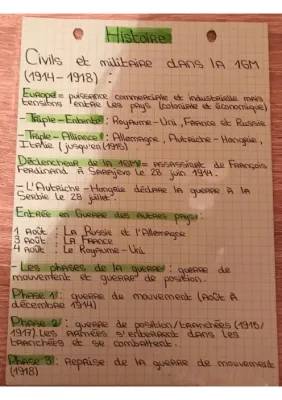 Histoire
Civils et militaire dans la 1GM
(1914-1918) :
Europe = puissance commerciale et industrielle mais
tensions entre les pays (coloniale et économique)
- Triple-Entente : Royaume-Uni, France et Russie
- Triple-Alliance : Allemagne, Autriche-Hongrie,
Italie (jusqu'en 1915)
Déclencheur de la 1GM = assassinat de François
Ferdinand à Sarajevo le 28 juin 1914.
- L'Autriche-Hongrie déclare la guerre à la
Serbie le 28 juillet.
Entrée en Guerre des autres pays :
1 Août : La Russie et l'Allemagne
3 Août : La France
4 Août : Le Royaume-Uni
- Les phases de la guerre : guerre de
mouvement et guerre de position.
Phase 1 : guerre de mouvement (Août à
décembre 1914)
Phase 2 : guerre de position/tranchées (1915/
1917). Les armées s'enterrent dans les
tranchées et se combattent.
Phase 3 : Reprise de la guerre de mouvement
(1918)